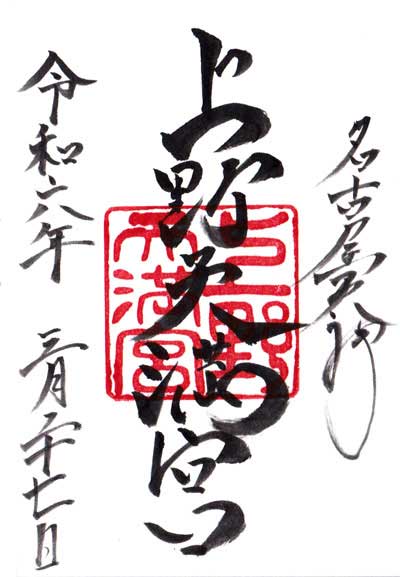 名古屋
上野天満宮
上野
天満宮
令和六年 三月二十七日